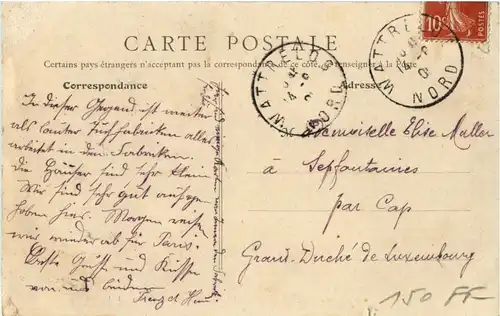 CARTE POSTALE
Certains pays étrangers n'acceptent pas la correspondance de ce côté. (Se renseigner à la Poste
Correspondance
Adresse
10c
WATTRELOS
NORD
WATTRELOS
NORD
In dieser Gegend ist weiter
als lauter Tuchfabriken alles
arbeitet in den Fabriken.
Die Häuser sind sehr klein
Wir sind sehr gut aufge-
hoben hier. Morgen reisen
wir wieder ab für Paris.
Beste Grüße und Küsse
von uns beiden
Mademoiselle Elise Muller
à
Septfontaines
par Cap
Grand-Duché de Luxembourg
150 FF